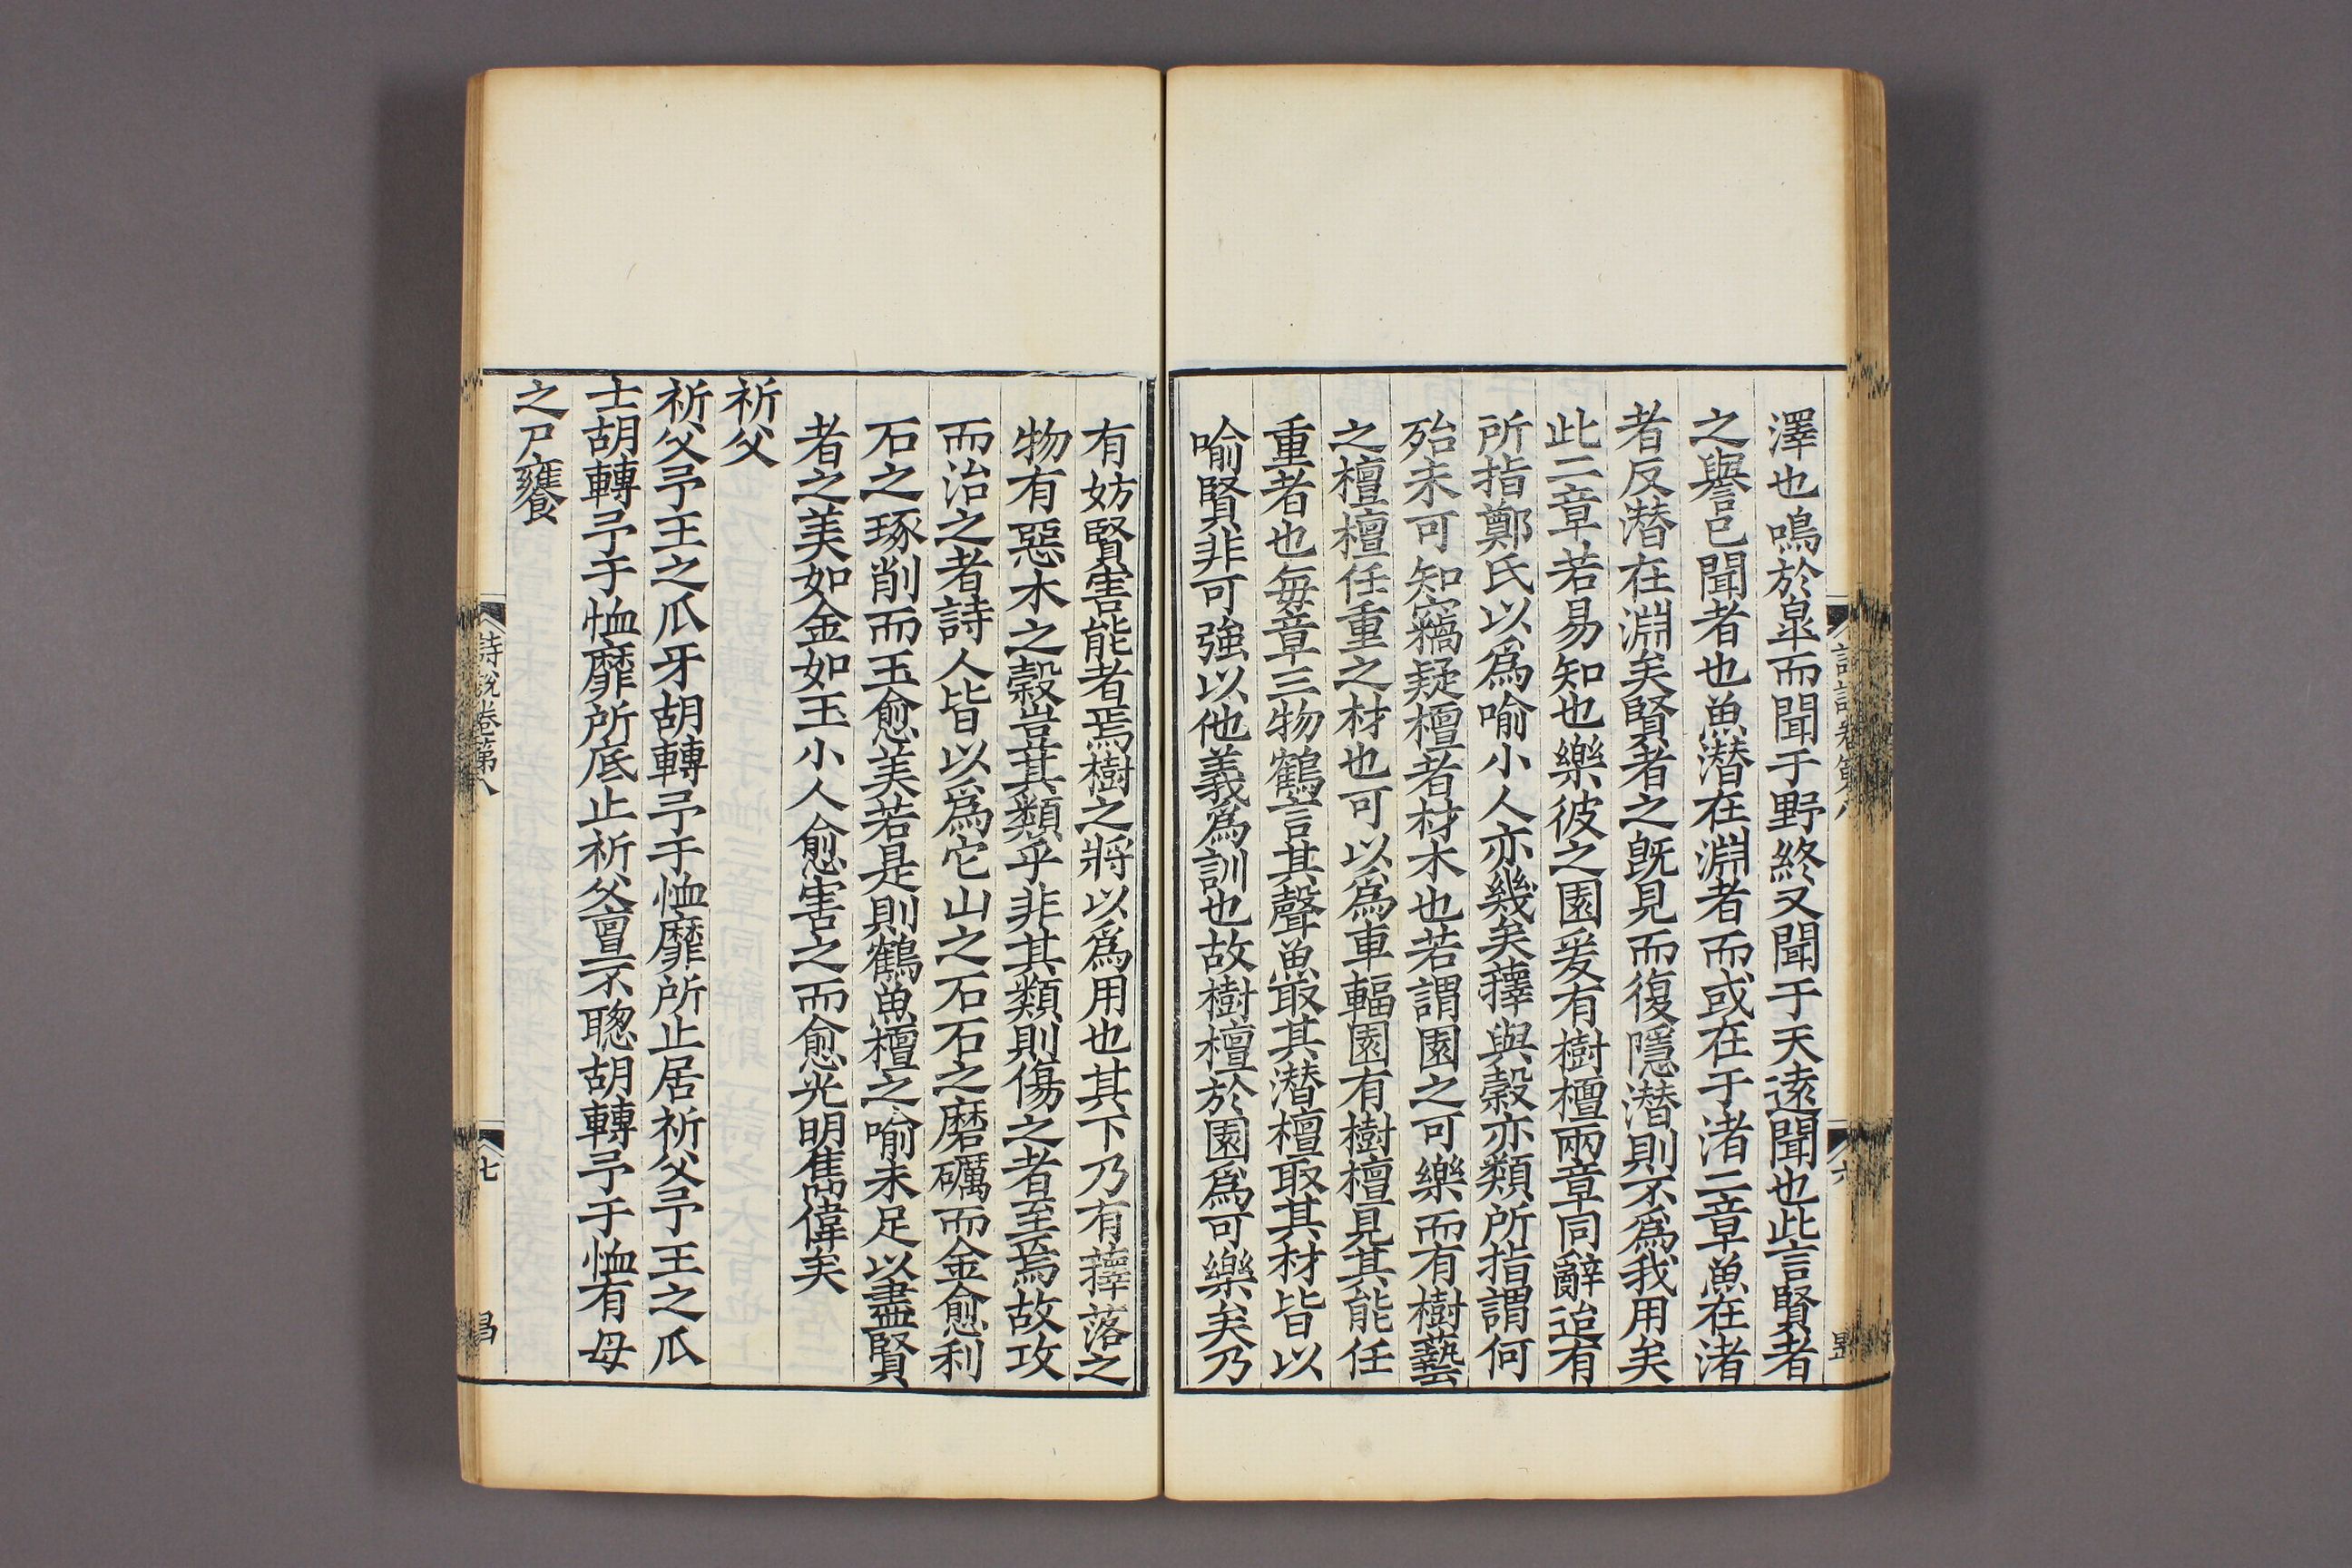 澤也鳴於皐而聞于野終又聞于天遠聞也此言賢者
之譽已聞者也魚潜在淵者而或在于渚二章魚在渚
者反潜在淵矣賢者之旣見而復隱潜則不爲我用矣
此二章若易知也樂彼之園爰有樹檀兩章同辭迨有
所指鄭氏以爲喻小人亦幾矣蘀與榖亦類所指謂何
殆未可知竊疑檀者材木也若謂園之可樂而有樹藝
之檀檀任重之材也可以爲車輻園有樹檀見其能任
重者也每章三物鶴言其聲魚取其潜檀取其材皆以
喻賢非可強以他義爲訓也故樹檀於園爲可樂矣乃
有妨賢害能者焉樹之將以爲用也其下乃有蘀落之
物有惡木之榖豈其類乎非其類則傷之者至焉故攻
而治之者詩人皆以爲它山之石石之磨礪而金愈利
石之琢削而玉愈美若是則鶴魚檀之喻未足以盡賢
者之美如金如玉小人愈害之而愈光明雋偉矣
祈父
祈父予王之爪牙胡轉予于恤靡所止居祈父予王之爪
士胡轉予于恤靡所底止祈父亶不聰胡轉予于恤有母
之尸饔
詩說卷第八
七
昌